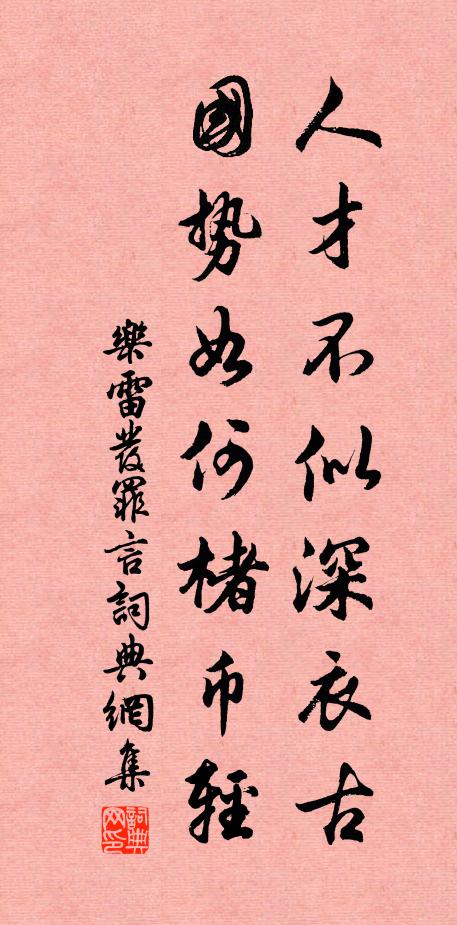 人才不似深衣古
國勢如何楮幣輕
樂雷發罪言詞典網集
詞典網印